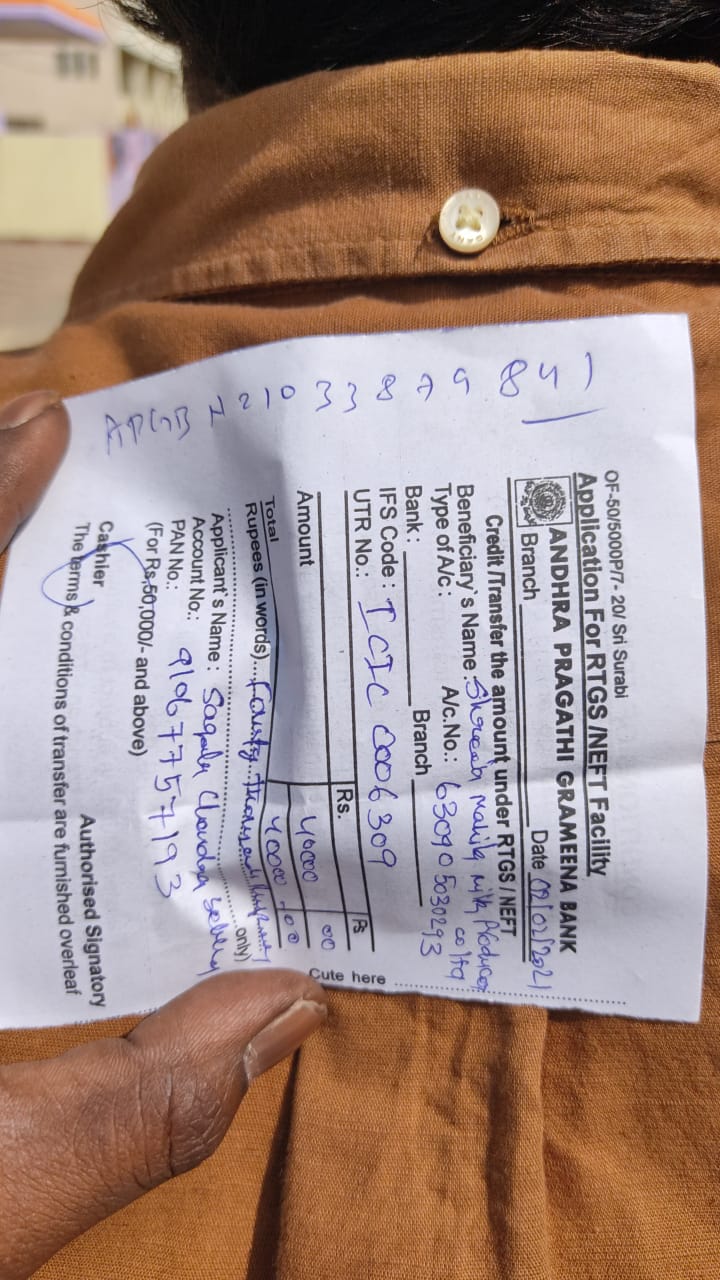 APGB N21033879841
OF-50/5000P/7- 20/ Sri Surabi
Application For RTGS /NEFT Facility
ANDHRA PRAGATHI GRAMEENA BANK
Branch Date 02/02/2021
Credit /Transfer the amount under RTGS / NEFT
Beneficiary`s Name : Shreeja Mahila milk Producer
co ltd
Type of A/c : A/c.No.: 630905030293
Bank : Branch
IFS Code : ICIC 0006309
UTR No.:
Rs. Ps
Amount 40000 00
Total 40000 00
Rupees (in words) Fourty Thousand only)
Applicant`s Name : Sagala Chandra
Account No.: 9106775 7193
PAN No.:
(For Rs.50,000/- and above)
Cashier Authorised Signatory
The terms & conditions of transfer are furnished overleaf
Cute here